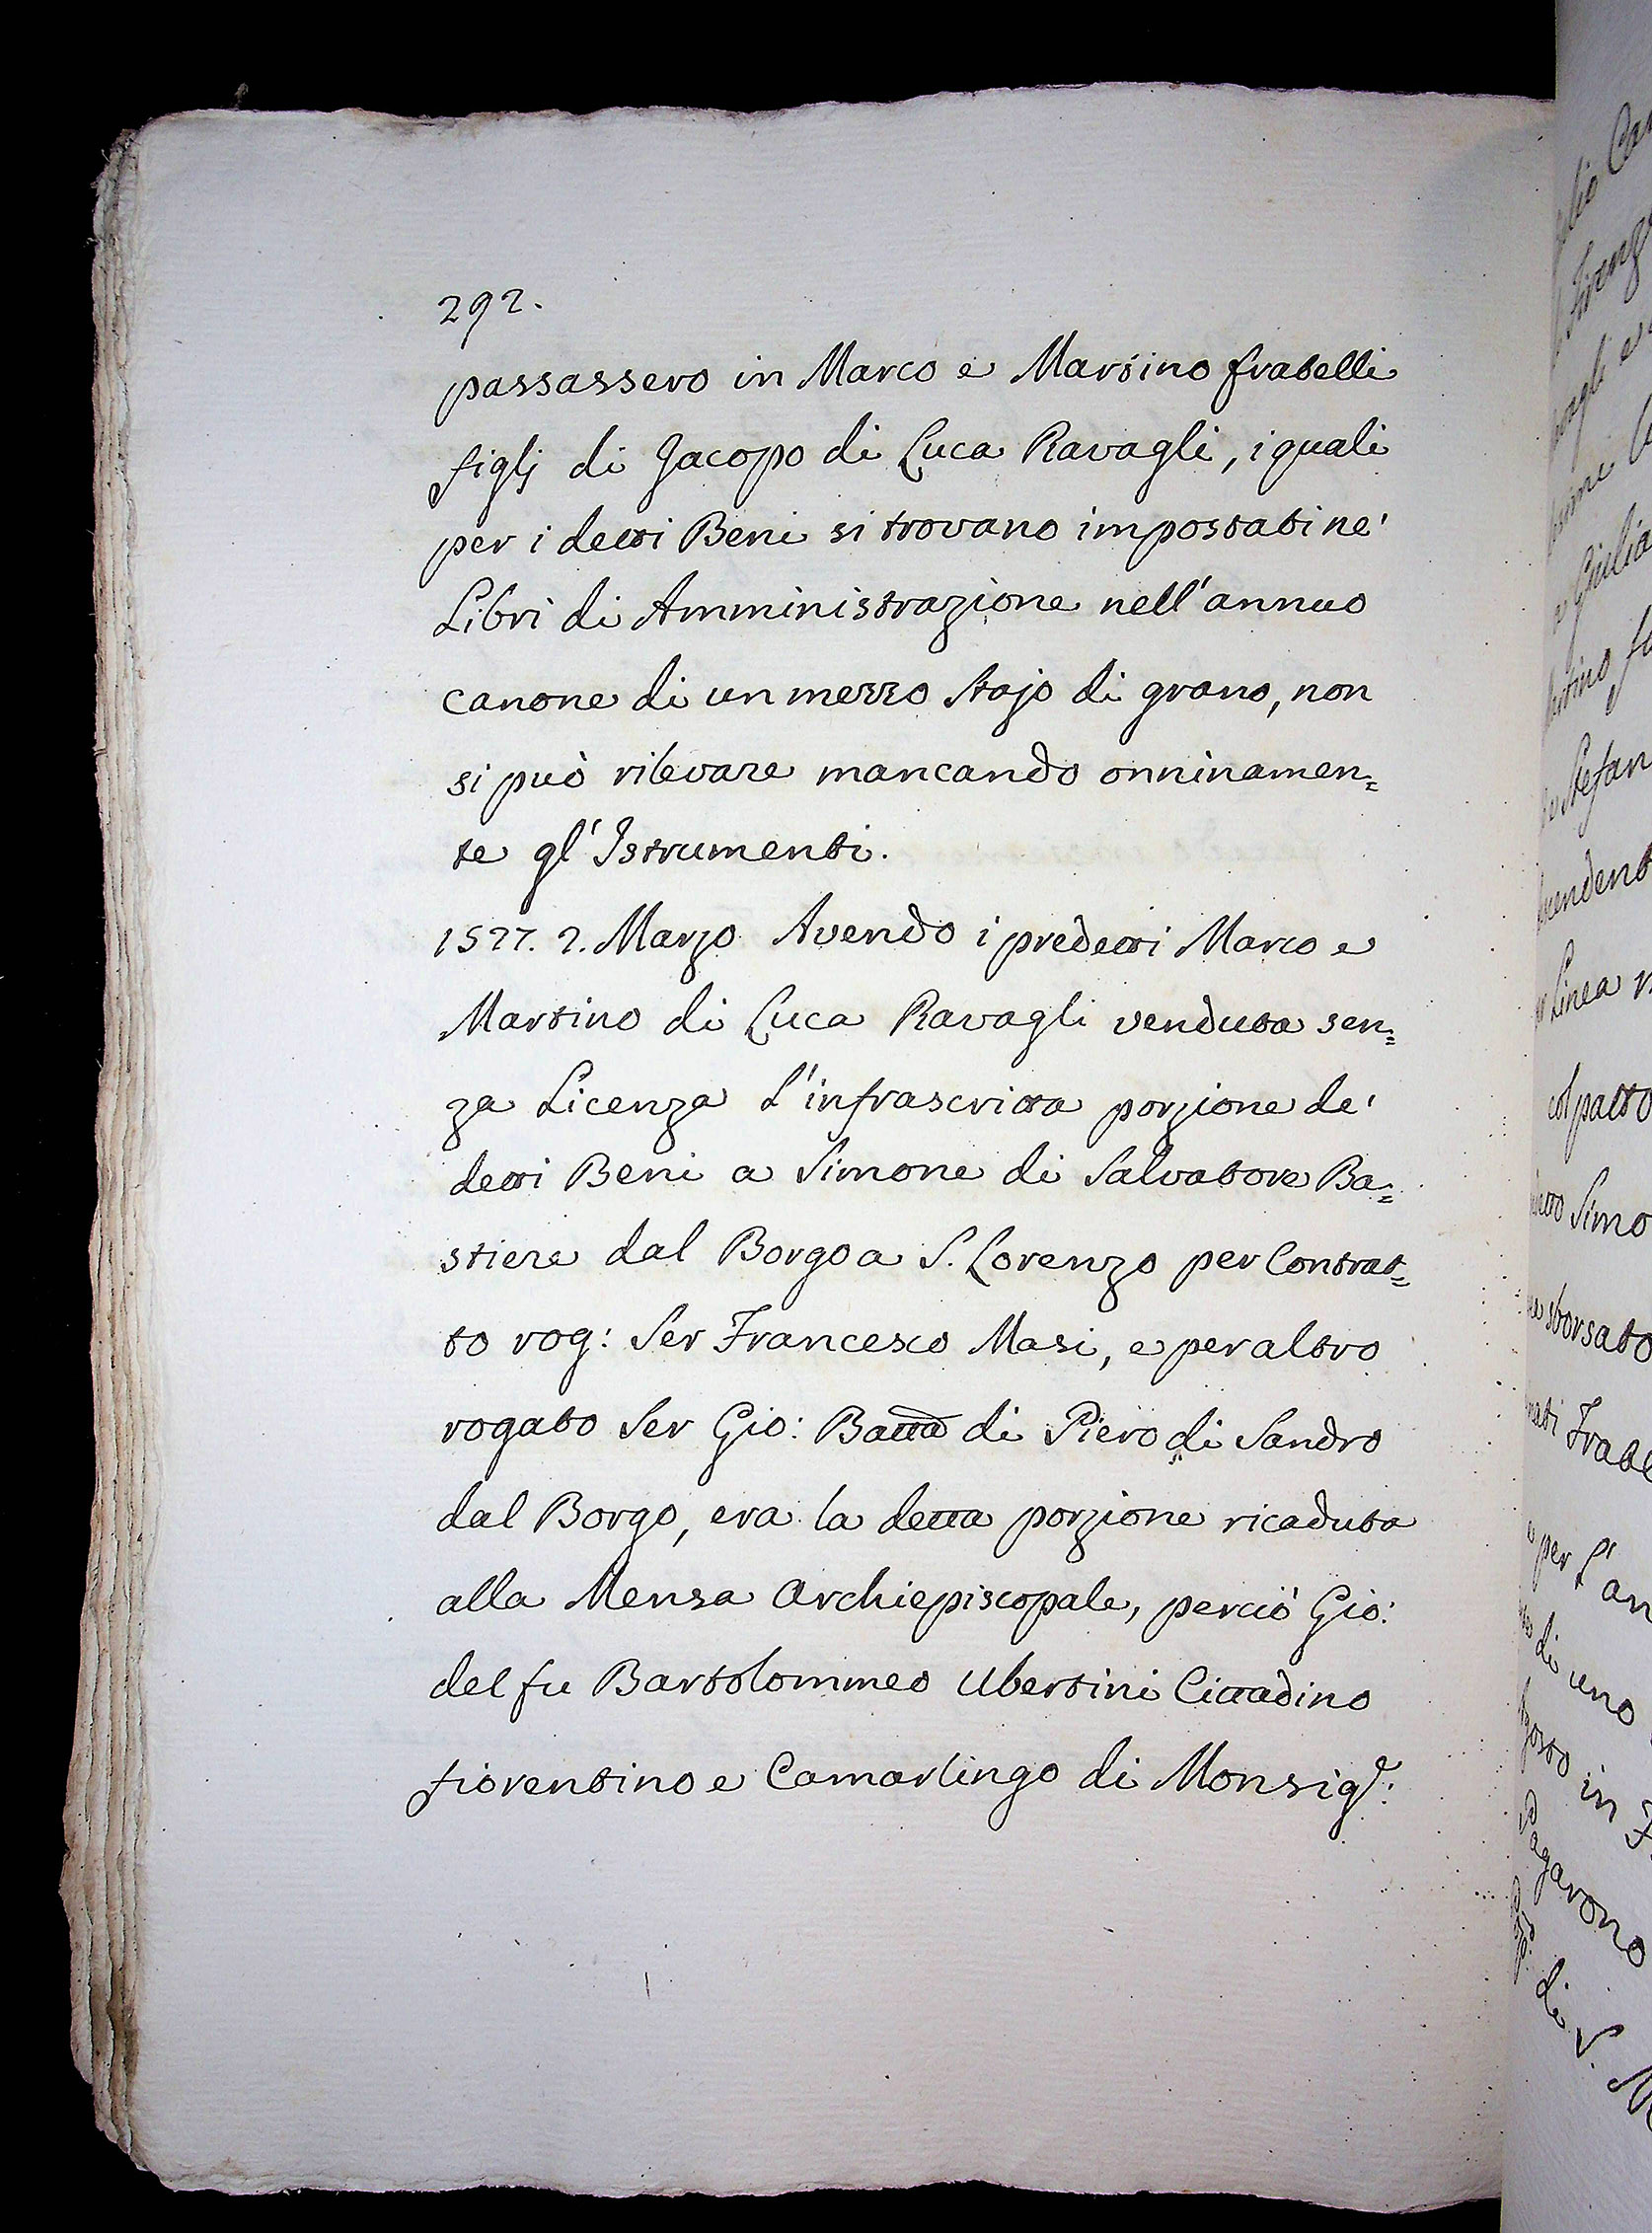 292.
passassero in Marco e Martino fratelli
figlj di Jacopo di Luca Ravagli, i quali
per i detti Beni si trovano impostati ne'
Libri di Amministrazione nell'annuo
canone di un mezzo Stajo di grano, non
si può rilevare mancando onninamen=
te gl'Istrumenti.
1527. 2. Marzo Avendo i predetti Marco e
Martino di Luca Ravagli venduta sen=
za Licenza l'infrascritta porzione de'
detti Beni a Simone di Salvatore Ba=
stiere dal Borgo a S. Lorenzo per Contrat=
to rog: Ser Francesco Masi, e per altro
rogato Ser Gio: Batta di Piero di Sandro
dal Borgo, era la detta porzione ricaduta
alla Mensa Archiepiscopale, perciò Gio:
del fu Bartolommeo Ubertini Cittadino
fiorentino e Camarlingo di Monsig.e:
Firenz
e Giulia
Stefan
Linea
col patto
Simo
sborsato
per l'an
di uno
in
pagarono
di S.